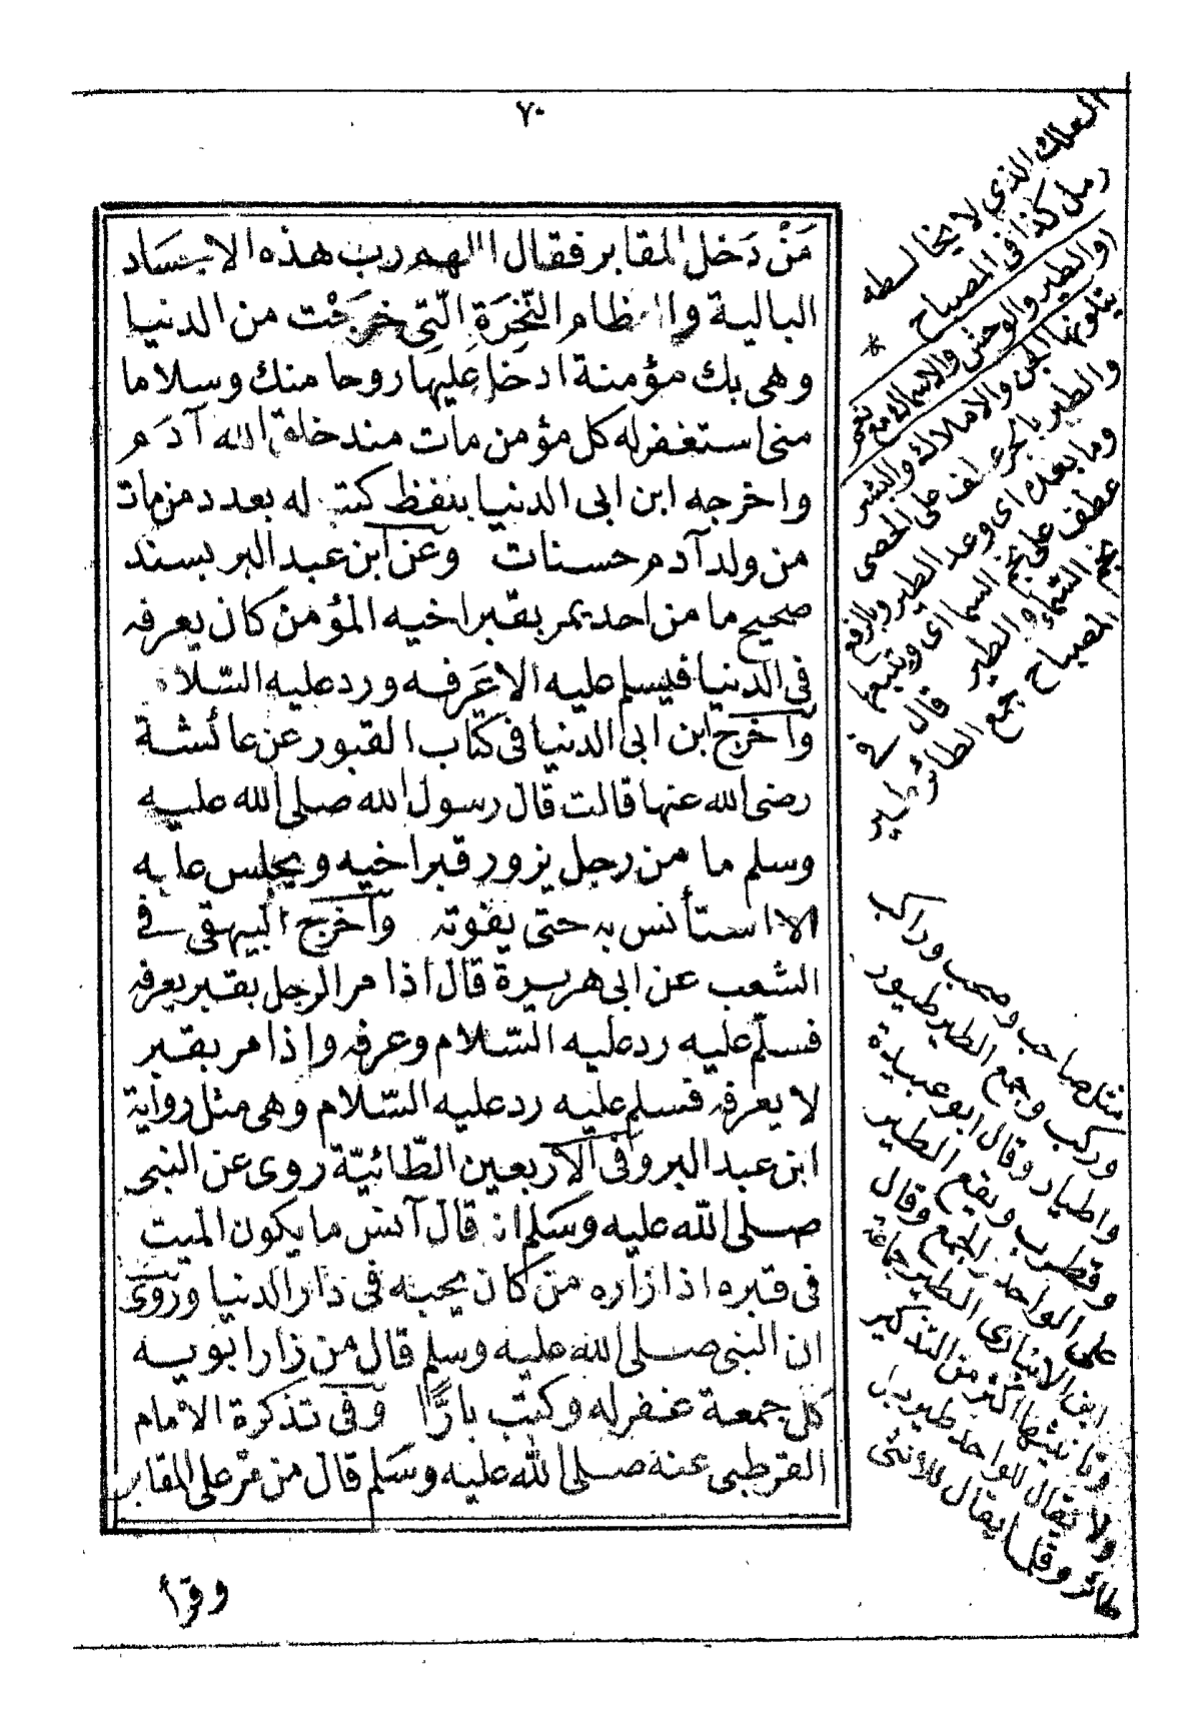 ٧٠
مَنْ دَخل المقابر فقال اللهم رب هذه الاجساد
البالية والعظام النَّخِرَة الّتى خرَجْت من الدنيا
وهى بك مؤمنة ادخل عليها روحا منك وسلاما
منى استغفر له كل مؤمن مات منذ خلق الله آدم
واخرجه ابن ابى الدنيا بلفظ كتب له بعدد من مات
من ولد آدم حسنات وعن ابن عبد البر بسند
صحيح ما من احد يمر بقبر اخيه المؤمن كان يعرفه
فى الدنيا فيسلم عليه الا عَرفه ورد عليه السّلام
وأخرج ابن ابى الدنيا فى كتاب القبور عن عائشة
رضى الله عنها قالت قال رسول الله صلى الله عليه
وسلم ما من رجل يزور قبر اخيه ويجلس عليه
الا استأنس به حتى يفوته وأخرج البيهقى فى
الشعب عن ابى هريرة قال اذا مر الرجل بقبر يعرفه
فسلّم عليه رد عليه السّلام وعرفه واذا مر بقبر
لا يعرفه فسلم عليه رد عليه السّلام وهى مثل رواية
ابن عبد البر وفى الأربعين الطّائيّة روى عن النبى
صلى الله عليه وسَلم انه قال آنس ما يكون الميت
فى قبره اذا زاره من كان يحبه فى دار الدنيا وروى
ان النبى صلى الله عليه وسلم قال من زار ابويه
كل جمعة غفر له وكتب بارًّا وفى تذكرة الامام
القرطبى عنه صلى الله عليه وسَلم قال من مر على المقابر
وقرأ
العلك الذي لا يخالطه
رمل كذا فى المصباح *
(والطير والوحش والاسماك مع نعم
يتلونها الجن والاملاك والبشر
والطير بالجر عطف على الحصى
وما بعده اى وعد الطير وبالرفع
عطف على نجم السما اى ويتبع
نجم السّمآء والطير قال فى
المصباح جمع الطائر طير
مثل صاحب وصحب وراكب
وركب وجمع الطير طيور
واطيار وقال ابو عبيدة
وقطرب ويقع الطير
على الواحد والجمع وقال
ابن الانبارى الطير جماعة
وتانيثها اكثر من التذكير
ولا يقال للواحد طير بل
طائر وقلما يقال للانثى